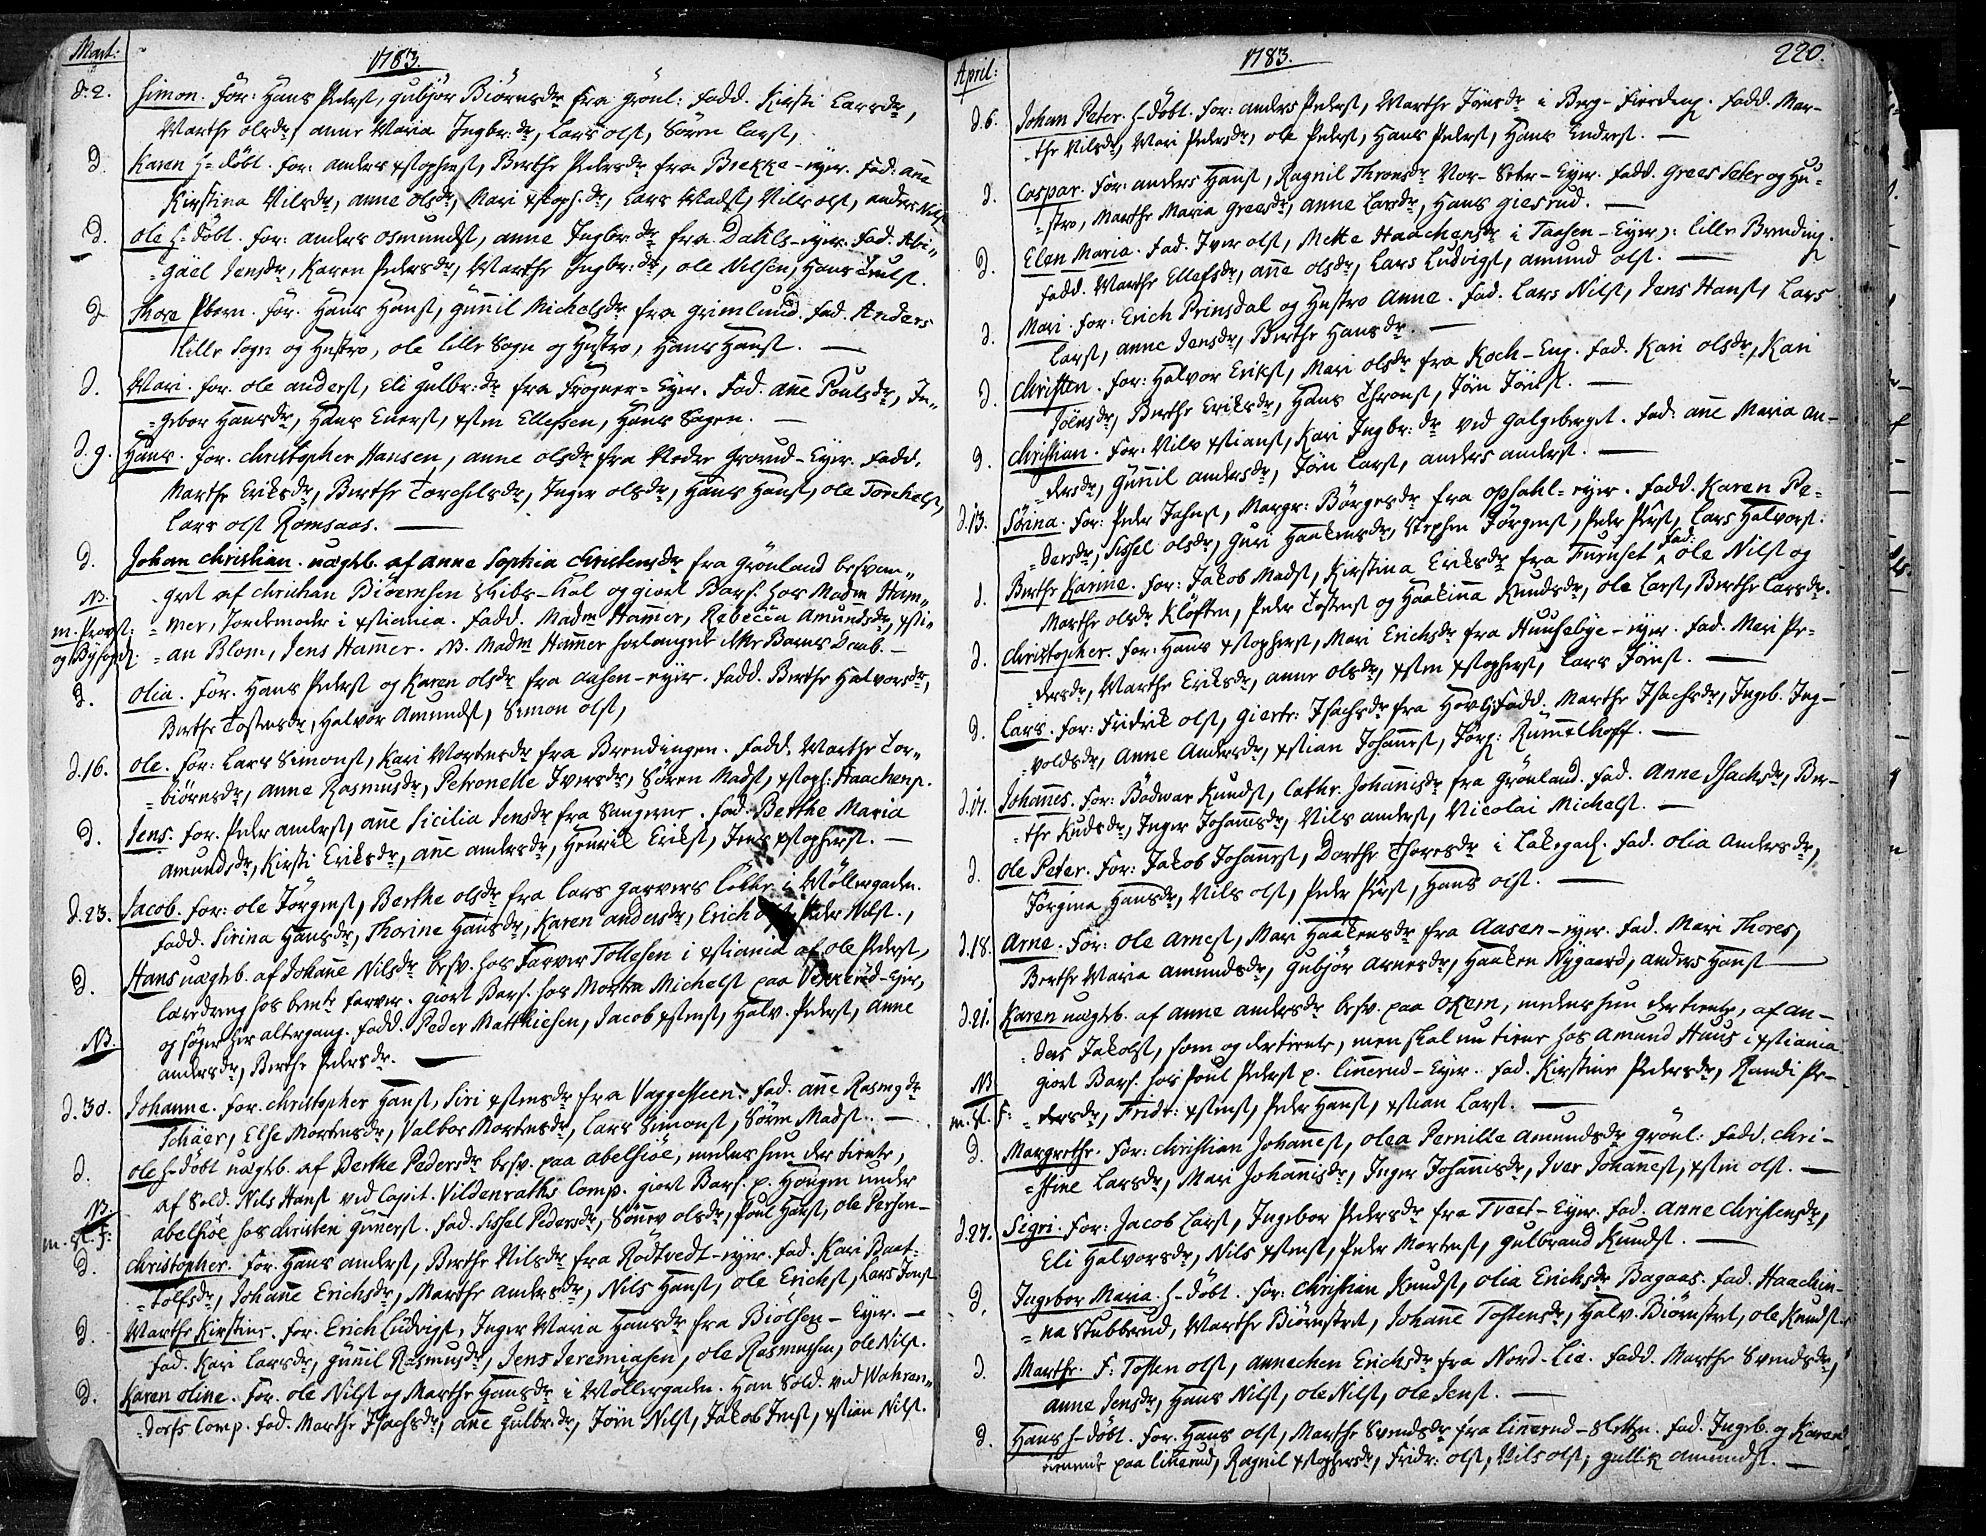 Mart:
1783.
d. 2. Simon. For: Hans Peders., Gubjør Biørnsdr fra Grønl: Fadd. Kirsti Larsdr,
Marthe Olsdr, Anne Maria Ingbr:dr, Lars Ols., Søren Lars.,
D. Karen H-døbt. For: Anders Xstophers., Berthe Pedersdr fra Brekke-eyer. Fad: Ane
Kirstina Nilsdr, Anne Olsdr, Mari Xstoph:dr, Lars Mads., Nils Ols., Anders Nils.
D. Ole H-døbt. For: Anders Osmunds., Anne Ingbr:dr fra Dahls-eyer. Fad. Abi-
-gael Jensdr, Karen Pedersdr, Marthe Ingbr:dr, Ole Nilsen, Hans Truls.
D. Thore Pbern. For. Hans Hans., Gunnil Michelsdr fra Grimlund. Fad. Anders
Lille Sogn og Hustro, Ole Lille Sogn og Hustro, Hans Hans. —
D. Mari. For. Ole Anders., Eli Gulbr:dr fra Frogner-Eyer. Fad. Ane Poulsdr, In-
-gebor Hansdr, Hans Evers., Xsten Ellefsen, Hans Sogen. —
d. 9. Hans. For. Christopher Hansen, Anne Olsdr fra Nedre Grorud-Eyer. Fadd.
Marthe Eriksdr, Berthe Torchelsdr, Inger Olsdr, Hans Hans., Ole Torchels.,
Lars Ols. Romsaas. —
D. Johan Christian. uægtb. af Anne Sophia Christensdr fra Grønland besvan-
NB. -gret af Christian Biørnsen Skibs- og giort Bars. hos Madm Ham-
m. Provst: -mer, Jordemoder i Xstiania. Fadd. Madm Hammer, Rebecca Amundsdr, Xsti-
og Byfoged. -an Blom, Jens Hammer. NB. Madm Hammer forlangede dette Barns Daab. —
D. Olia. For. Hans Peders. og Karen Olsdr fra Aasen-eyer. Fadd. Berthe Halvorsdr,
Berthe Tostensdr, Halvor Amunds., Simon Ols.,
d. 16. Ole. For: Lars Simons., Kari Mortensdr fra Brendingen. Fadd. Marthe Tor-
-biørnsdr, Anne Rasmusdr, Petronelle Iversdr, Søren Mads., Xstoph: Haachens.
D. Jens. For. Peder Anders., Ane Sicilia Jensdr fra Saugerne. Fad. Berthe Maria
Amundsdr, Kirsti Eriksdr, Ane Andersdr, Henrik Eriks., Jens Xstophers. —
d. 23. Jacob. For: Ole Jørgens., Berthe Olsdr fra Lars Garvers Løkke i Møllergaden.
Fadd. Sirina Hansdr, Thorine Hansdr, Karen Andersdr, Erich Ols., Peder Nils.,
D. Hans uægtb. af Johanne Nilsdr besv. hos Farver Tollefsen i Xstiania af Ole Peders.,
Læredreng hos bemte Farver. giort Bars. hos Morten Michels. paa Vekkerud-Eyer,
NB. og søger her altergang. Fadd. Peder Matthiesen, Jacob Xstens., Halv. Peders., Anne
Andersdr, Berthe Pedersdr. —
d. 30. Johanne. For. Christopher Hans., Siri Xstensdr fra Vaggesteen. Fad. Ane Rasmgdr
Schäer, Else Mortensdr, Valbor Mortensdr, Lars Simons., Søren Mads. —
D. Ole H-døbt uægtb. af Berthe Pedersdr besv. paa Abelsiøe, medens hun der tiente,
NB. af Sold. Nils Hans. ved Capit. Vildenraths Comp. giort Bars. p. Hougen under
m. st. F: Abelsiøe hos Christen Gunners. Fad. Sissel Pedersdr, Sønnev Olsdr, Poul Hans., Ole Persen —
D. Christopher. For. Hans Anders., Berthe Nilsdr fra Rødtvedt-eyer. Fad. Kari Baat-
-tolfsdr, Johanne Erichsdr, Marthe Andersdr, Nils Hans., Ole Erichs., Lars Jons.
D. Marthe Kirstine. For. Erich Ludvigs., Inger Maria Hansdr fra Biølsen-Eyer. —
Fad. Kari Larsdr, Gunnil Rasmusdr, Jens Jeremiasen, Ole Rasmussen, Ole Nils.
D. Karen Oline. For. Ole Nils. og Marthe Hansdr i Møllergaden. Han Sold. ved Wahren-
-dorfs Comp. Fad. Marthe Isachsdr, Ane Gulbr:dr, Jørn Nils., Jakob Jens., Xstian Nils.
April:
1783.
220.
d. 6. Johan Peter. H-døbt. For: Anders Peders., Marthe Jønsdr i Berg-Fierding. Fadd. Mar-
-the Nilsdr, Mari Pedersdr, Ole Peders., Hans Peders., Hans Enders. —
D. Caspar. For: Anders Hans., Ragnil Thronsdr Nor-Seter-Eyer. Fadd. Grees Seter og Hu-
-stro, Marthe Maria Greesdr, Anne Larsdr, Hans Giesrud. —
D. Elen Maria. Fad. Iver Ols., Mette Haachensdr i Taasen-Eyer, : lille Brending.
Fadd. Marthe Ellefsdr, Ane Olsdr, Lars Ludvigs., Amund Ols. —
D. Mari. For: Erich Prinsdal og Hustro Anne. Fad. Lars Nils., Jens Hans., Lars
Lars., Anne Jensdr, Berthe Hansdr. —
D. Christen. For: Halvor Eriks., Mari Olsdr fra Koch-Eng. Fad. Kari Olsdr, Kari
Joensdr, Berthe Eriksdr, Hans Throns., Jørn Jørns. —
D. Christian. For: Nils Xstians., Kari Ingbr:dr ved Galgeberget. Fad. Ane Maria An-
-dersdr, Gunnil Andersdr, Jørn Lars., Anders Anders. —
d. 13. Sørina. For: Peder Johns., Margr: Børgesdr fra Opsahl-eyer. Fadd. Karen Pe-
-dersdr, Sissel Olsdr, Guri Haakensdr, Stephen Jørgens., Peder Pers., Lars Halvors.
D. Berthe Karine. For: Jakob Mads., Kirstina Eriksdr fra Furuset Fad: Ole Nils. og
Marthe Olsdr Kløften, Peder Tostens. og Haakinna Knudsdr, Ole Lars., Berthe Larsdr.
D. Christopher. For: Hans Xstophers., Mari Erichsdr fra Huusebye-eyer. Fad. Mari Pe-
-dersdr, Marthe Eriksdr, Anne Olsdr, Xsten Xstophers., Lars Jøns. —
D. Lars. For: Fridrik Ols., Giertr: Isachsdr fra Hovl: Fadd. Marthe Isachsdr, Ingeb. Ing-
-voldsdr, Anne Andersdr, Xstian Johannes., Jørg: Rummelhoff. —
d. 17. Johannes. For: Bødwar Knuds., Cathr. Johannisdr fra Grønland. Fad. Anne Isachsdr, Ber-
-the Kudsdr, Inger Johannsdr, Nils Anders., Nicolai Michels. —
D. Ole Peter. For: Jakob Johannes., Dorthe Thoresdr i Lakegad. Fad. Olia Andersdr,
Jørgine Hansdr, Nils Ols., Peder Pers., Hans Ols. —
d. 18. Arne. For: Ole Arnes., Mari Haakensdr fra Aasen-eyer. Fad. Mari Thores,
Berthe Maria Amundsdr, Gubjør Arnesdr, Haaken Nygaard, Anders Hans. —
d. 21. Karen uægtb. af Anne Andersdr besv. paa Økern, medens hun der tiente, af An-
-ders Jakobs., som og der tiente, men skal nu tiene hos Amund Huus i Xstiania
NB giort Bars. hos Poul Peders. p. Linnerud-Eyer. Fad. Kirstine Pedersdr, Randi Pe-
m. st. F: -dersdr, Fridr: Xstens., Peder Hans., Xstian Lars. —
D. Margrethe. For: Christian Johannes., Olea Pernille Amundsdr Grønl: Fadd. Chri-
-stine Larsdr, Mari Johannisdr, Inger Johannisdr, Iver Johannes., Xsten Ols. —
d. 27. Segri. For: Jacob Lars., Ingebor Pedersdr fra Tveet-Eyer. Fad. Anne Christensdr,
Eli Halvorsdr, Nils Xstens., Peder Mortens., Gulbrand Knuds. —
D. Ingebor Maria. H-døbt. For: Christian Knuds., Olia Erichsdr Bagaas. Fad. Haachin-
-na Stubberud, Marthe Biørnstvet, Johanne Tostensdr, Halv. Biørnstvet, Ole Knuds.
D. Marthe. F: Tosten Ols., Annechen Erichsdr fra Nord-Lie. Fadd. Marthe Svendsdr,
Anne Jensdr, Hans Nils., Ole Nils., Ole Jens. —
D. Hans H-døbt. For. Hans Ols., Marthe Svendsdr fra Linnerud-Sletten. Fad. Ingeb. og Karen
tienende paa Linnerud, Ragnil Xstophersdr, Fridr: Ols., Nils Ols., Gullik Amunds. —